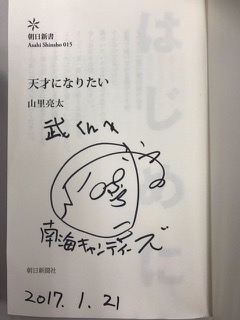 朝日新書
Asahi Shinsho 015
天才になりたい
山里亮太
武くんへ
南海キャンディーズ
朝日新聞社
2017.1.21
はじめに